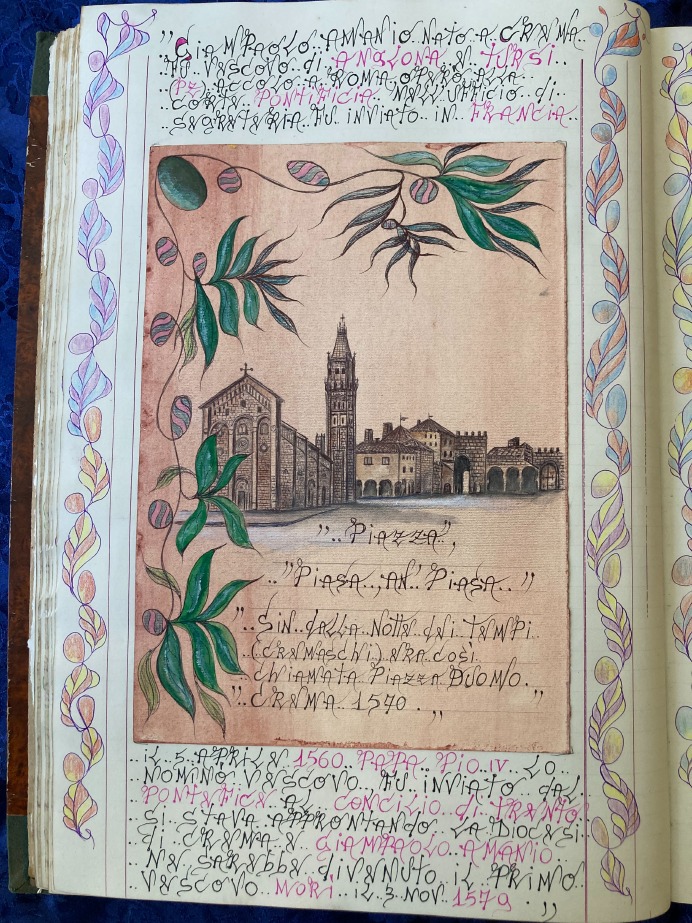 " GIAMPAOLO AMANIO NATO A CREMA
FU VESCOVO di ANGLONA E TURSI..
(PZ) ACCOLTO A ROMA OPERÒ ALLA
CORTE PONTIFICIA NELL'UFFICIO di
SEGRETERIA FU INVIATO IN FRANCIA..
".. PIAZZA",
.. "PIASA ,, AN PIASA.. "
".. SIN dALLA NOTTE dEI TEMPI..
(CREMASCHI) ERA COSÌ
CHIAMATA PIAZZA DUOMO.
".. CREMA 1570 .. "
.. IL 5 APRILE 1560 PAPA PIO IV.. LO..
NOMINÒ VESCOVO. FU INVIATO DAL
PONTEFICE AL CONCILIO di TRENTO
SI STAVA APPRONTANDO LA DIOCESI
di CREMA E GIAMPAOLO AMANIO
NE SAREBBE DIVENUTO IL PRIMO
VESCOVO MORÌ IL 3 NOV. 1579 . "